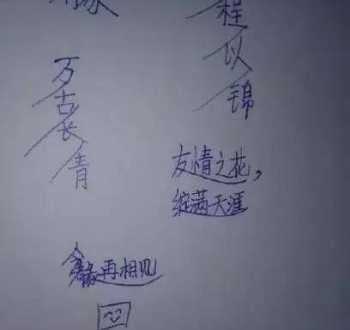 万古长青
程以锦
友情之花,
绽满天涯
缘再相见